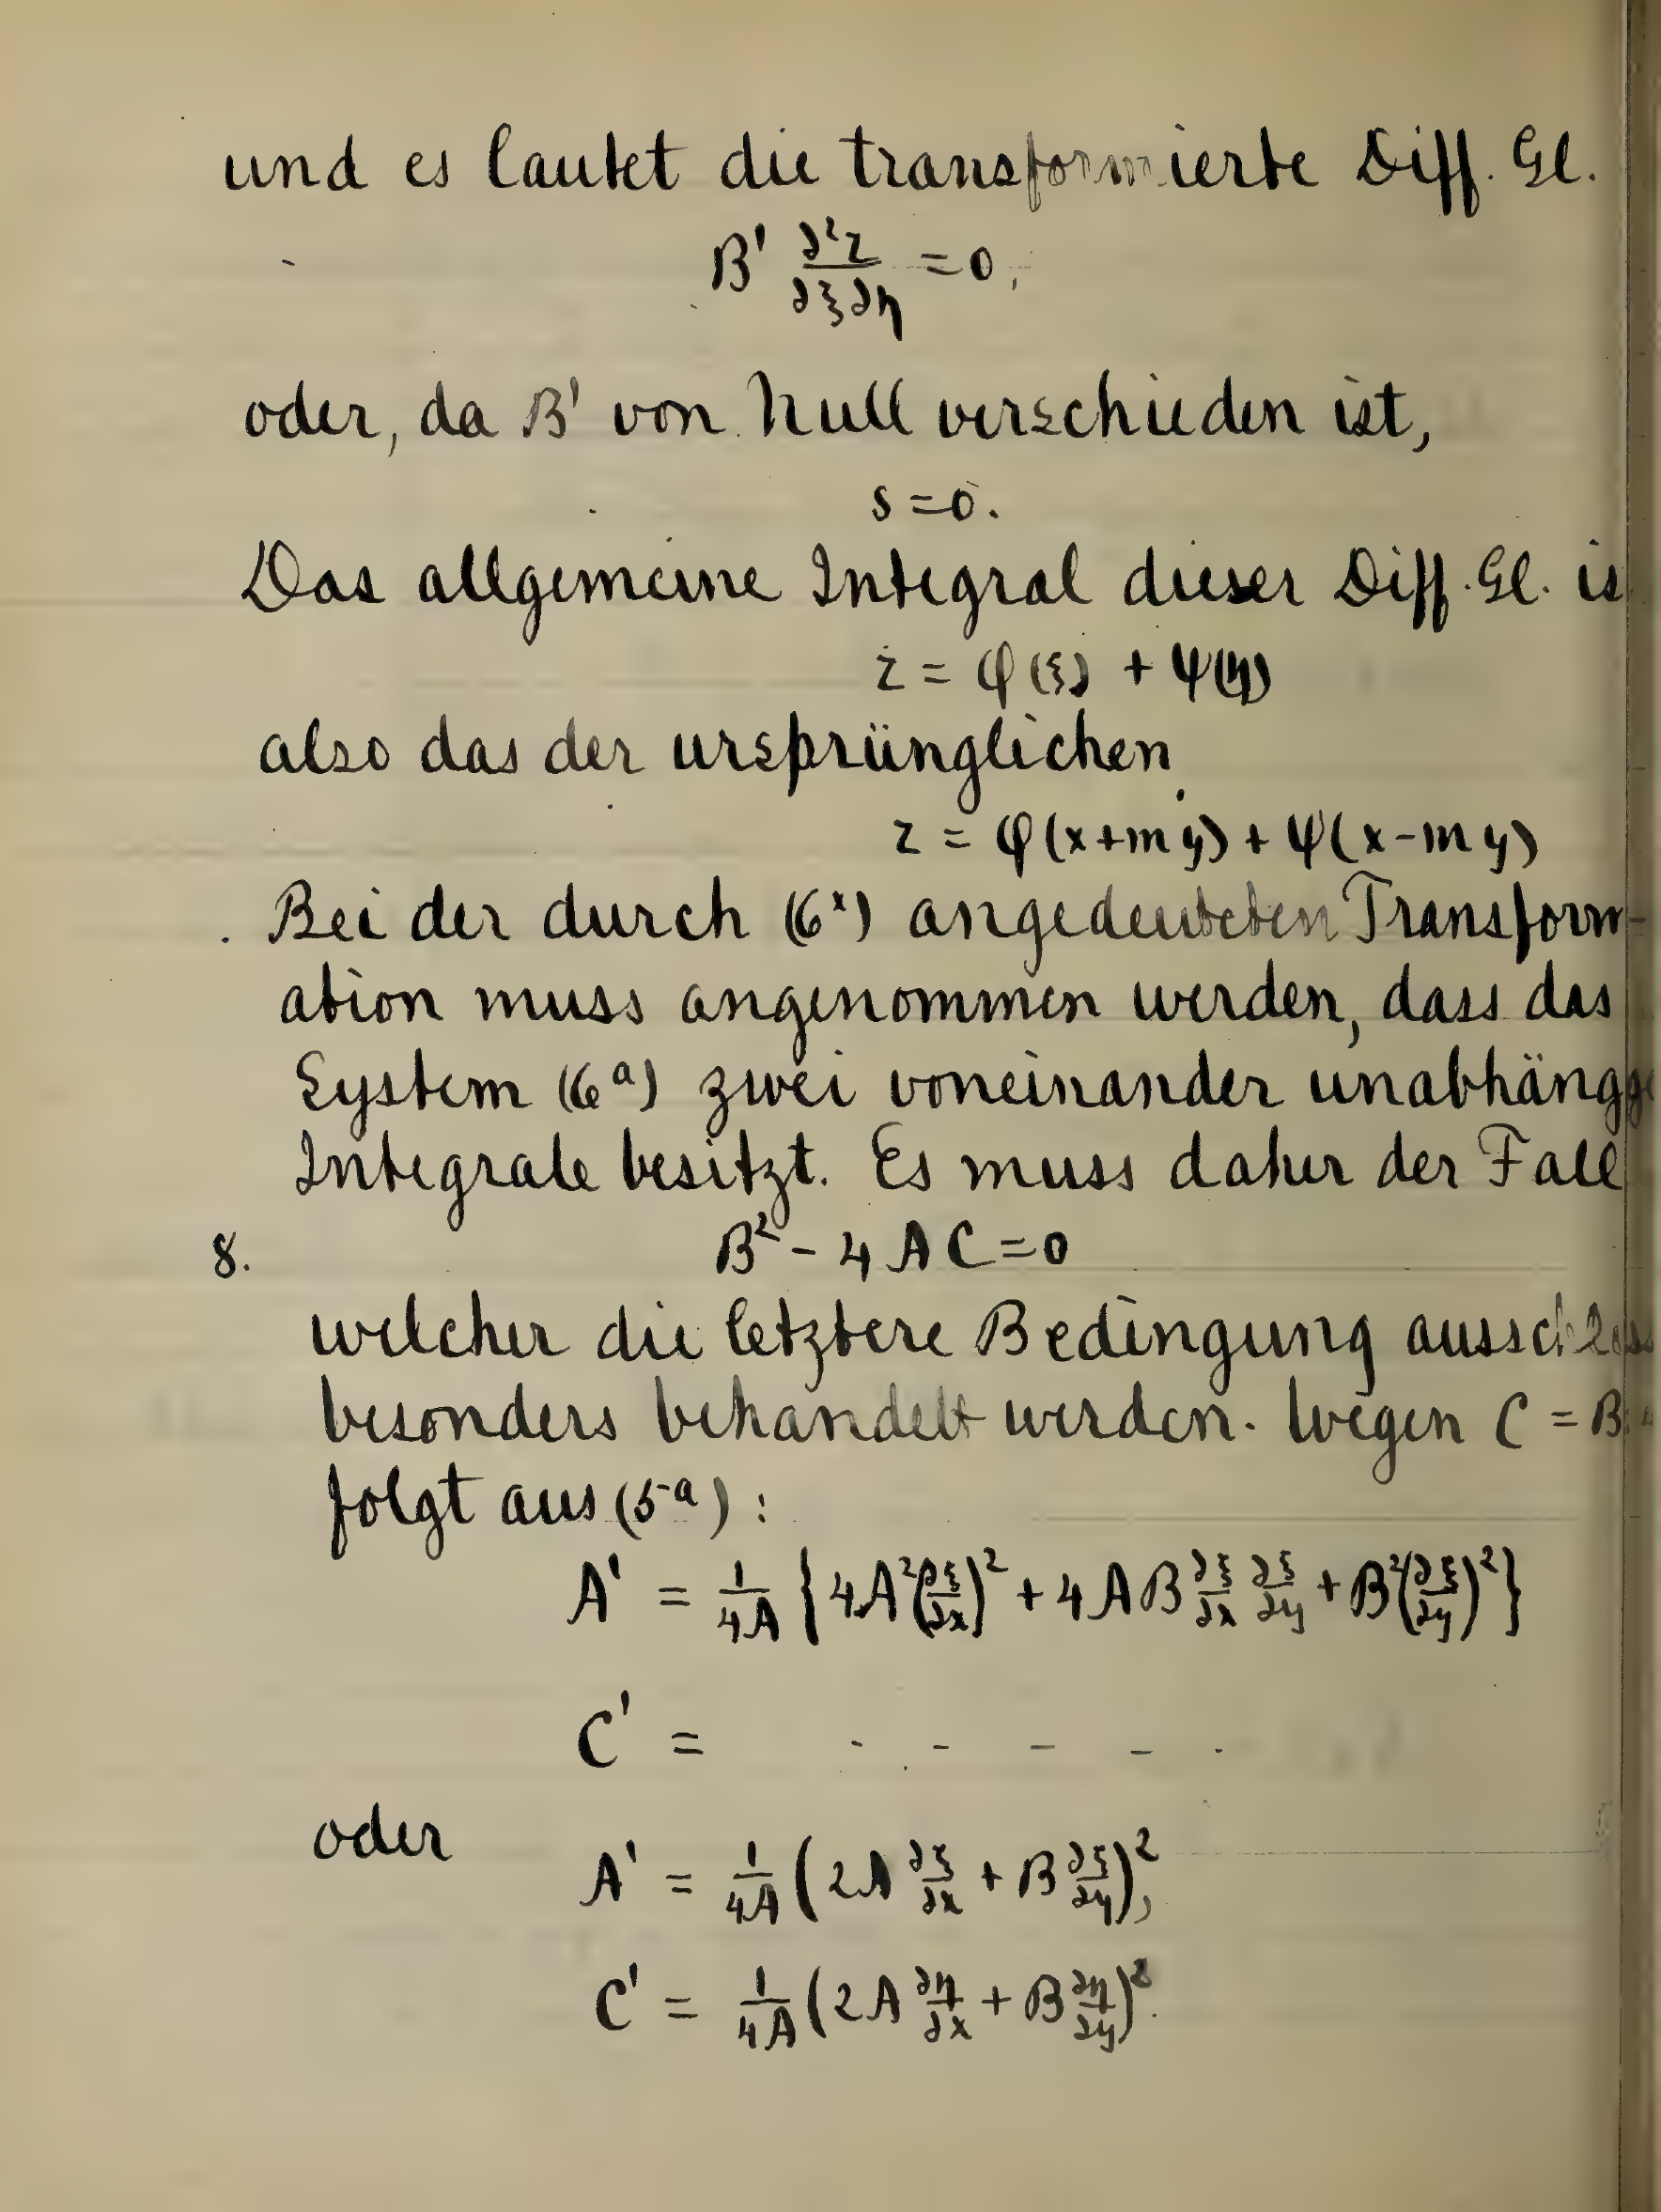 und es lautet die transformierte Diff. Gl.
B' ∂²z/∂ξ∂η = 0,
oder, da B' von Null verschieden ist,
s = 0.
Das allgemeine Integral dieser Diff. Gl. is
z = φ(ξ) + ψ(η)
also das der ursprünglichen
z = φ(x+my) + ψ(x-my)
Bei der durch (6ˣ) angedeuteten Transform-
ation muss angenommen werden, dass das
System (6ᵃ) zwei voneinander unabhängge
Integrale besitzt. Es muss daher der Fall
8. B² - 4AC = 0
welcher die letztere Bedingung
besonders behandelt werden. Wegen C = B
folgt aus (5ᵃ):
A' = 1/4A {4A²(∂ξ/∂x)² + 4AB ∂ξ/∂x ∂ξ/∂y + B²(∂ξ/∂y)²}
C' = - - - - -
oder A' = 1/4A (2A ∂ξ/∂x + B ∂ξ/∂y)²,
C' = 1/4A (2A ∂η/∂x + B ∂η/∂y)².